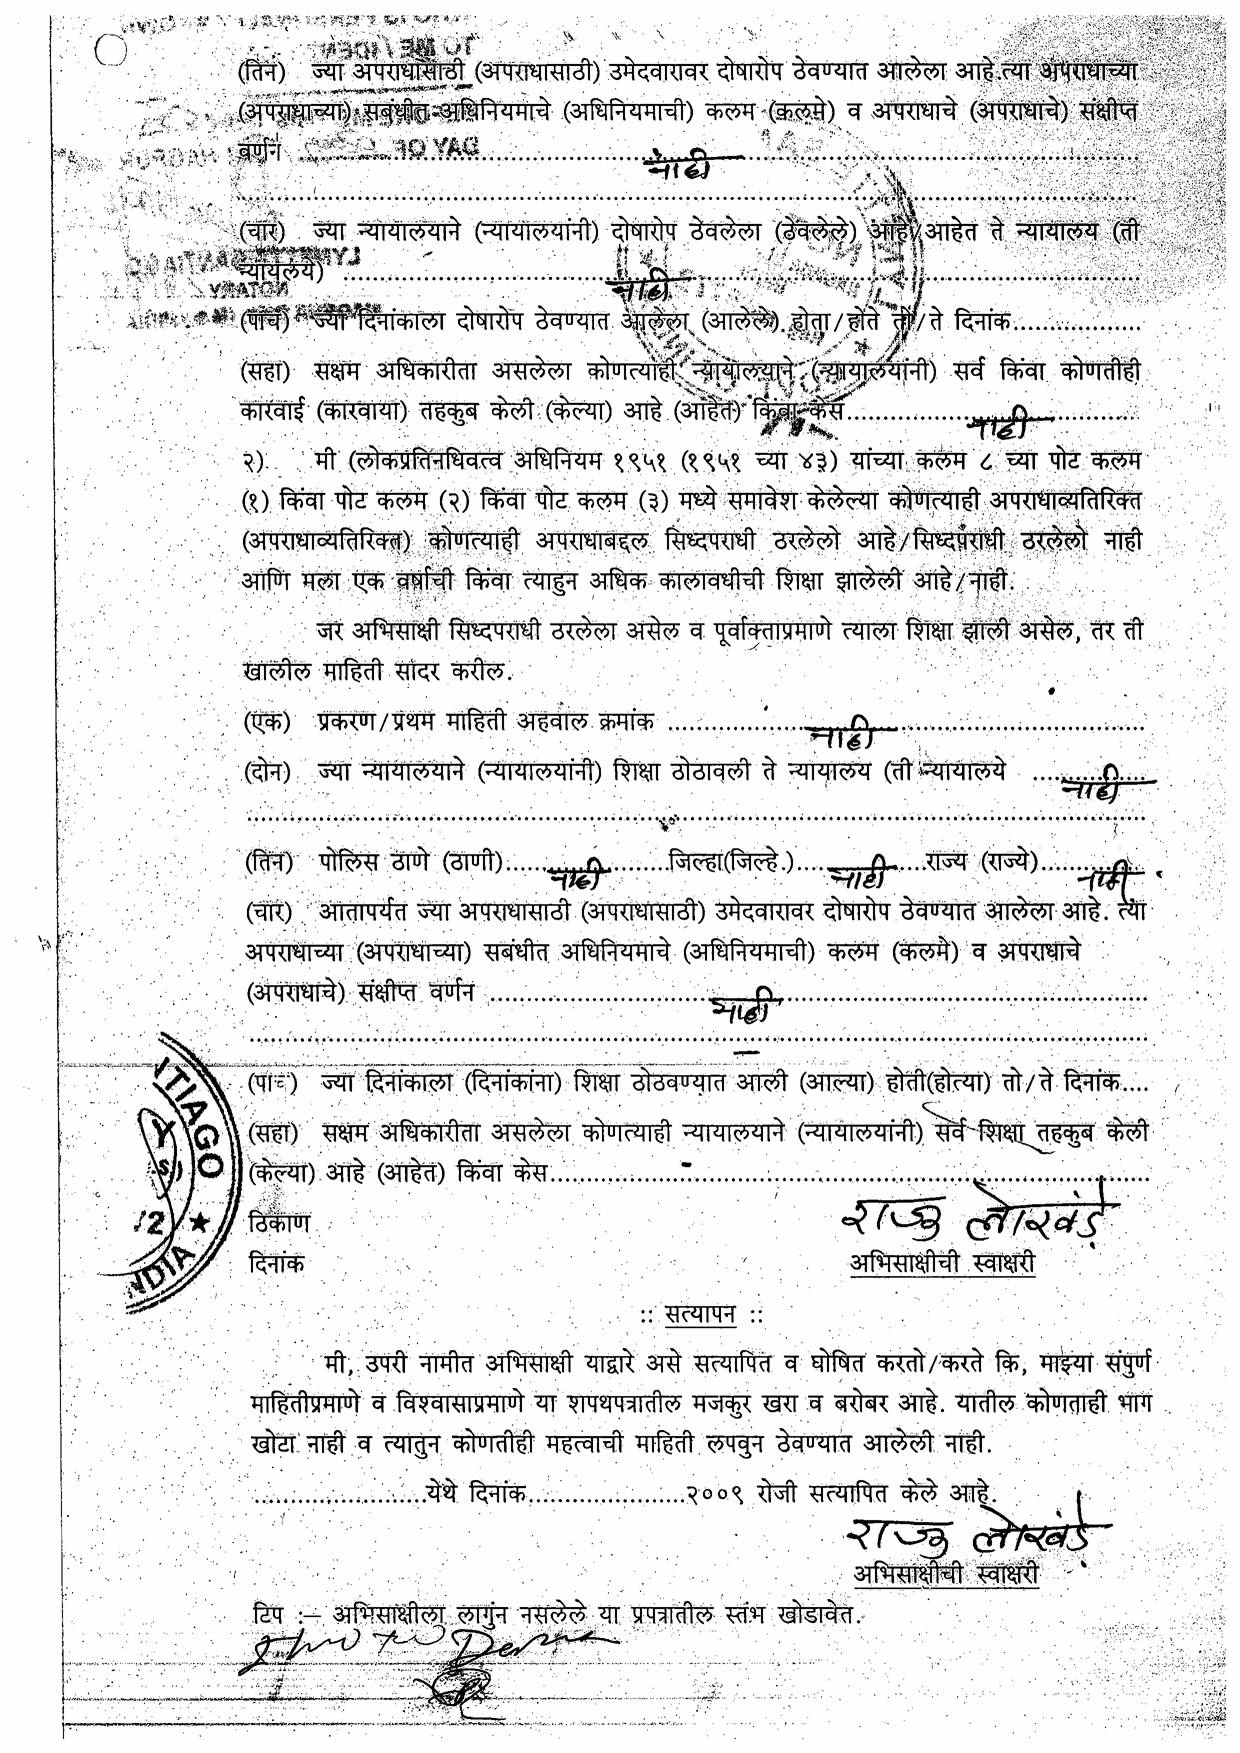 (तिन) ज्या अपराधासाठी (अपराधासाठी) उमेदवारावर दोषारोप ठेवण्यात आलेला आहे.त्या अपराधाच्या
(अपराधाच्या) सबंधीत अधिनियमाचे (अधिनियमाची) कलम (कलमे) व अपराधाचे (अपराधाचे) संक्षीप्त
वर्णन .......... नाही
(चार) ज्या न्यायालयाने (न्यायालयांनी) दोषारोप ठेवलेला (ठेवलेले) आहे/आहेत ते न्यायालय (ती
न्यायलये) .......... नाही
(पाच) ज्या दिनांकाला दोषारोप ठेवण्यात आलेला (आलेले) होता/होते तो/ते दिनांक..................
(सहा) सक्षम अधिकारीता असलेला कोणत्याही न्यायालयाने (न्यायालयांनी) सर्व किंवा कोणतीही
कारवाई (कारवाया) तहकुब केली (केल्या) आहे (आहेत) किंवा केस.......... नाही
२) मी (लोकप्रतिनधिवत्व अधिनियम १९५१ (१९५१ च्या ४३) यांच्या कलम ८ च्या पोट कलम
(१) किंवा पोट कलम (२) किंवा पोट कलम (३) मध्ये समावेश केलेल्या कोणत्याही अपराधाव्यतिरिक्त
(अपराधाव्यतिरिक्त) कोणत्याही अपराधाबद्दल सिध्दपराधी ठरलेलो आहे/सिध्दपराधी ठरलेलो नाही
आणि मला एक वर्षाची किंवा त्याहुन अधिक कालावधीची शिक्षा झालेली आहे/नाही.
जर अभिसाक्षी सिध्दपराधी ठरलेला असेल व पूर्वाक्ताप्रमाणे त्याला शिक्षा झाली असेल, तर ती
खालील माहिती सादर करील.
(एक) प्रकरण/प्रथम माहिती अहवाल क्रमांक .......... नाही
(दोन) ज्या न्यायालयाने (न्यायालयांनी) शिक्षा ठोठावली ते न्यायालय (ती न्यायालये .......... नाही
(तिन) पोलिस ठाणे (ठाणी).......... नाही ..........जिल्हा(जिल्हे.).......... नाही ..........राज्य (राज्ये).......... नाही
(चार) आतापर्यत ज्या अपराधासाठी (अपराधासाठी) उमेदवारावर दोषारोप ठेवण्यात आलेला आहे. त्या
अपराधाच्या (अपराधाच्या) सबंधीत अधिनियमाचे (अधिनियमाची) कलम (कलमे) व अपराधाचे
(अपराधाचे) संक्षीप्त वर्णन .......... नाही
(पाच) ज्या दिनांकाला (दिनांकांना) शिक्षा ठोठवण्यात आली (आल्या) होती(होत्या) तो/ते दिनांक....
(सहा) सक्षम अधिकारीता असलेला कोणत्याही न्यायालयाने (न्यायालयांनी) सर्व शिक्षा तहकुब केली
(केल्या) आहे (आहेत) किंवा केस..........
TIAGO
INDIA
ठिकाण
राजु लोखंडे
दिनांक
अभिसाक्षीची स्वाक्षरी
:: सत्यापन ::
मी, उपरी नामीत अभिसाक्षी याद्वारे असे सत्यापित व घोषित करतो/करते कि, माझ्या संपुर्ण
माहितीप्रमाणे व विश्वासाप्रमाणे या शपथपत्रातील मजकुर खरा व बरोबर आहे. यातील कोणताही भाग
खोटा नाही व त्यातुन कोणतीही महत्वाची माहिती लपवुन ठेवण्यात आलेली नाही.
......................येथे दिनांक....................२००९ रोजी सत्यापित केले आहे.
राजु लोखंडे
अभिसाक्षीची स्वाक्षरी
टिप :– अभिसाक्षीला लागुंन नसलेले या प्रपत्रातील स्तंभ खोडावेत.